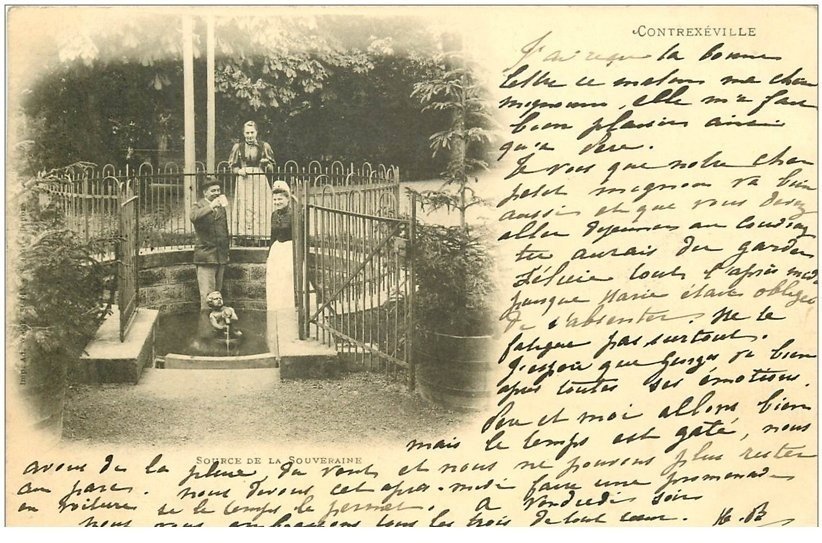 CONTREXÉVILLE
J'ai reçu ta bonne
lettre ce matin ma chère
mignonne, elle m'a fait
bien plaisir ainsi
qu'à père.
Je vois que notre cher
petit mignon va bien
aussi et que vous devez
aller déjeuner au
tu aurais du garder
Félicie toute l'après midi
puisque Marie était obligée
de s'absenter. Ne te
fatigue pas surtout.
J'espère que Georges va bien
après toutes ses émotions.
Père et moi allons bien
mais le temps est gâté, nous
SOURCE DE LA SOUVERAINE
avons de la pluie, du vent et nous ne pouvons plus rester
au parc. nous devons cet après-midi faire une promenade
en voiture si le temps le permet. A Vendredi soir
nous vous embrassons tous les trois de tout cœur. H. B